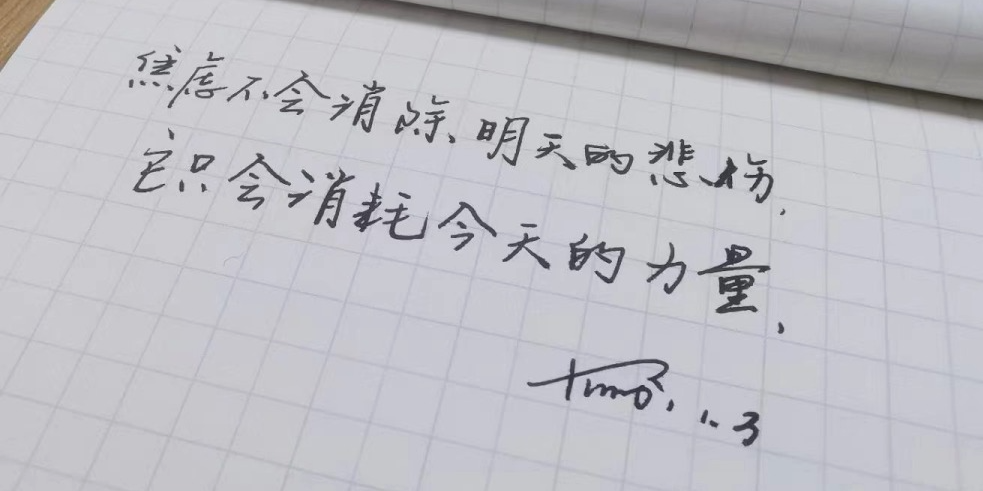 焦虑不会消除、明天的悲伤,
它只会消耗今天的力量、
timo. 1.3